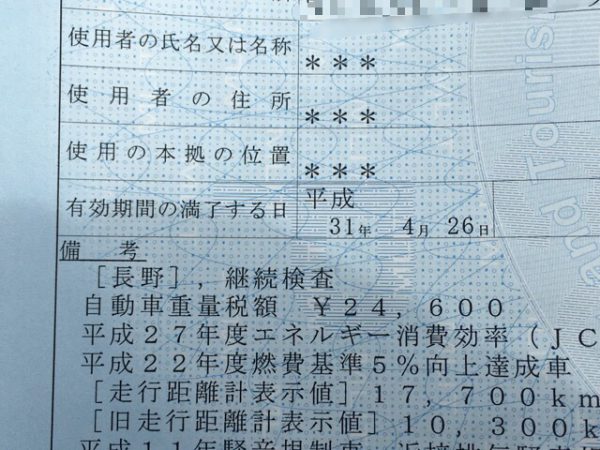 使用者の氏名又は名称
***
使用者の住所
***
使用の本拠の位置
***
有効期間の満了する日
平成
31年 4月 26日
備考
[長野],継続検査
自動車重量税額 ¥24,600
平成27年度エネルギー消費効率(JC
平成22年度燃費基準5%向上達成車
[走行距離計表示値]17,700km
[旧走行距離計表示値]10,300k
Touris
and